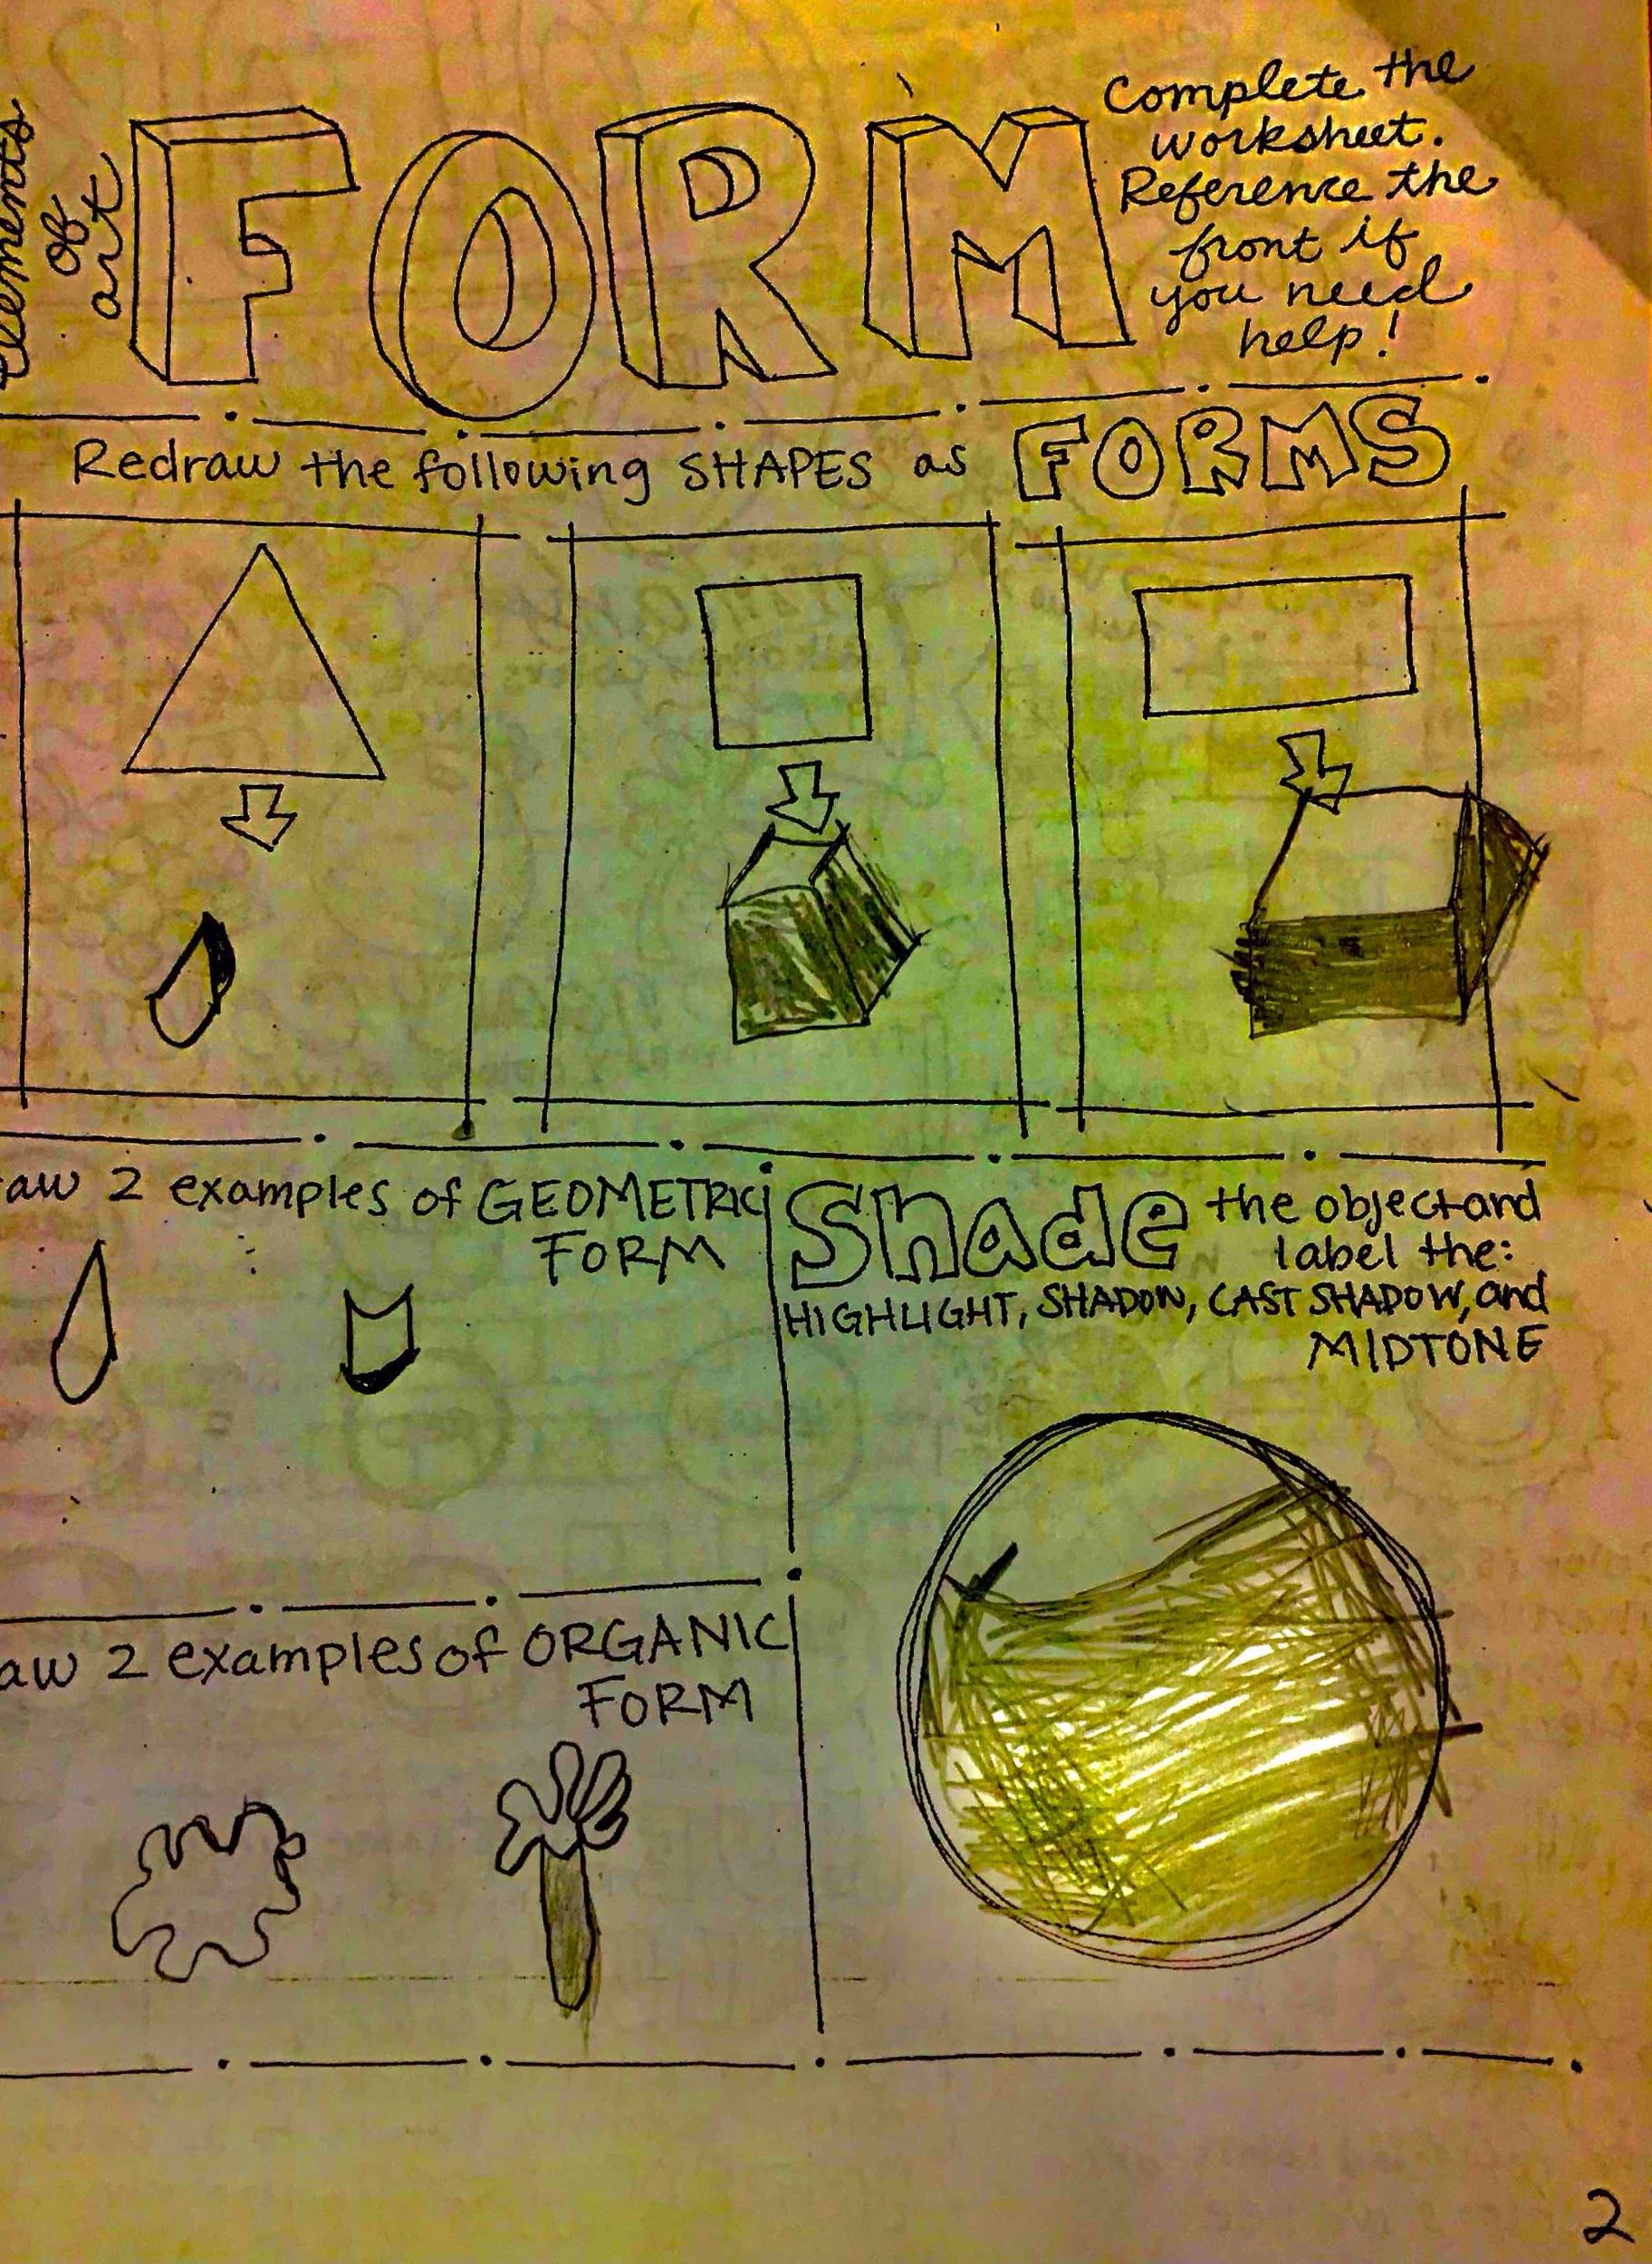 elements
of
art
FORM
Complete the
worksheet.
Reference the
front if
you need
help!
Redraw the following SHAPES as FORMS
aw 2 examples of GEOMETRIC
FORM
Shade the object and
label the:
HIGHLIGHT, SHADOW, CAST SHADOW, and
MIDTONE
aw 2 examples of ORGANIC
FORM
2